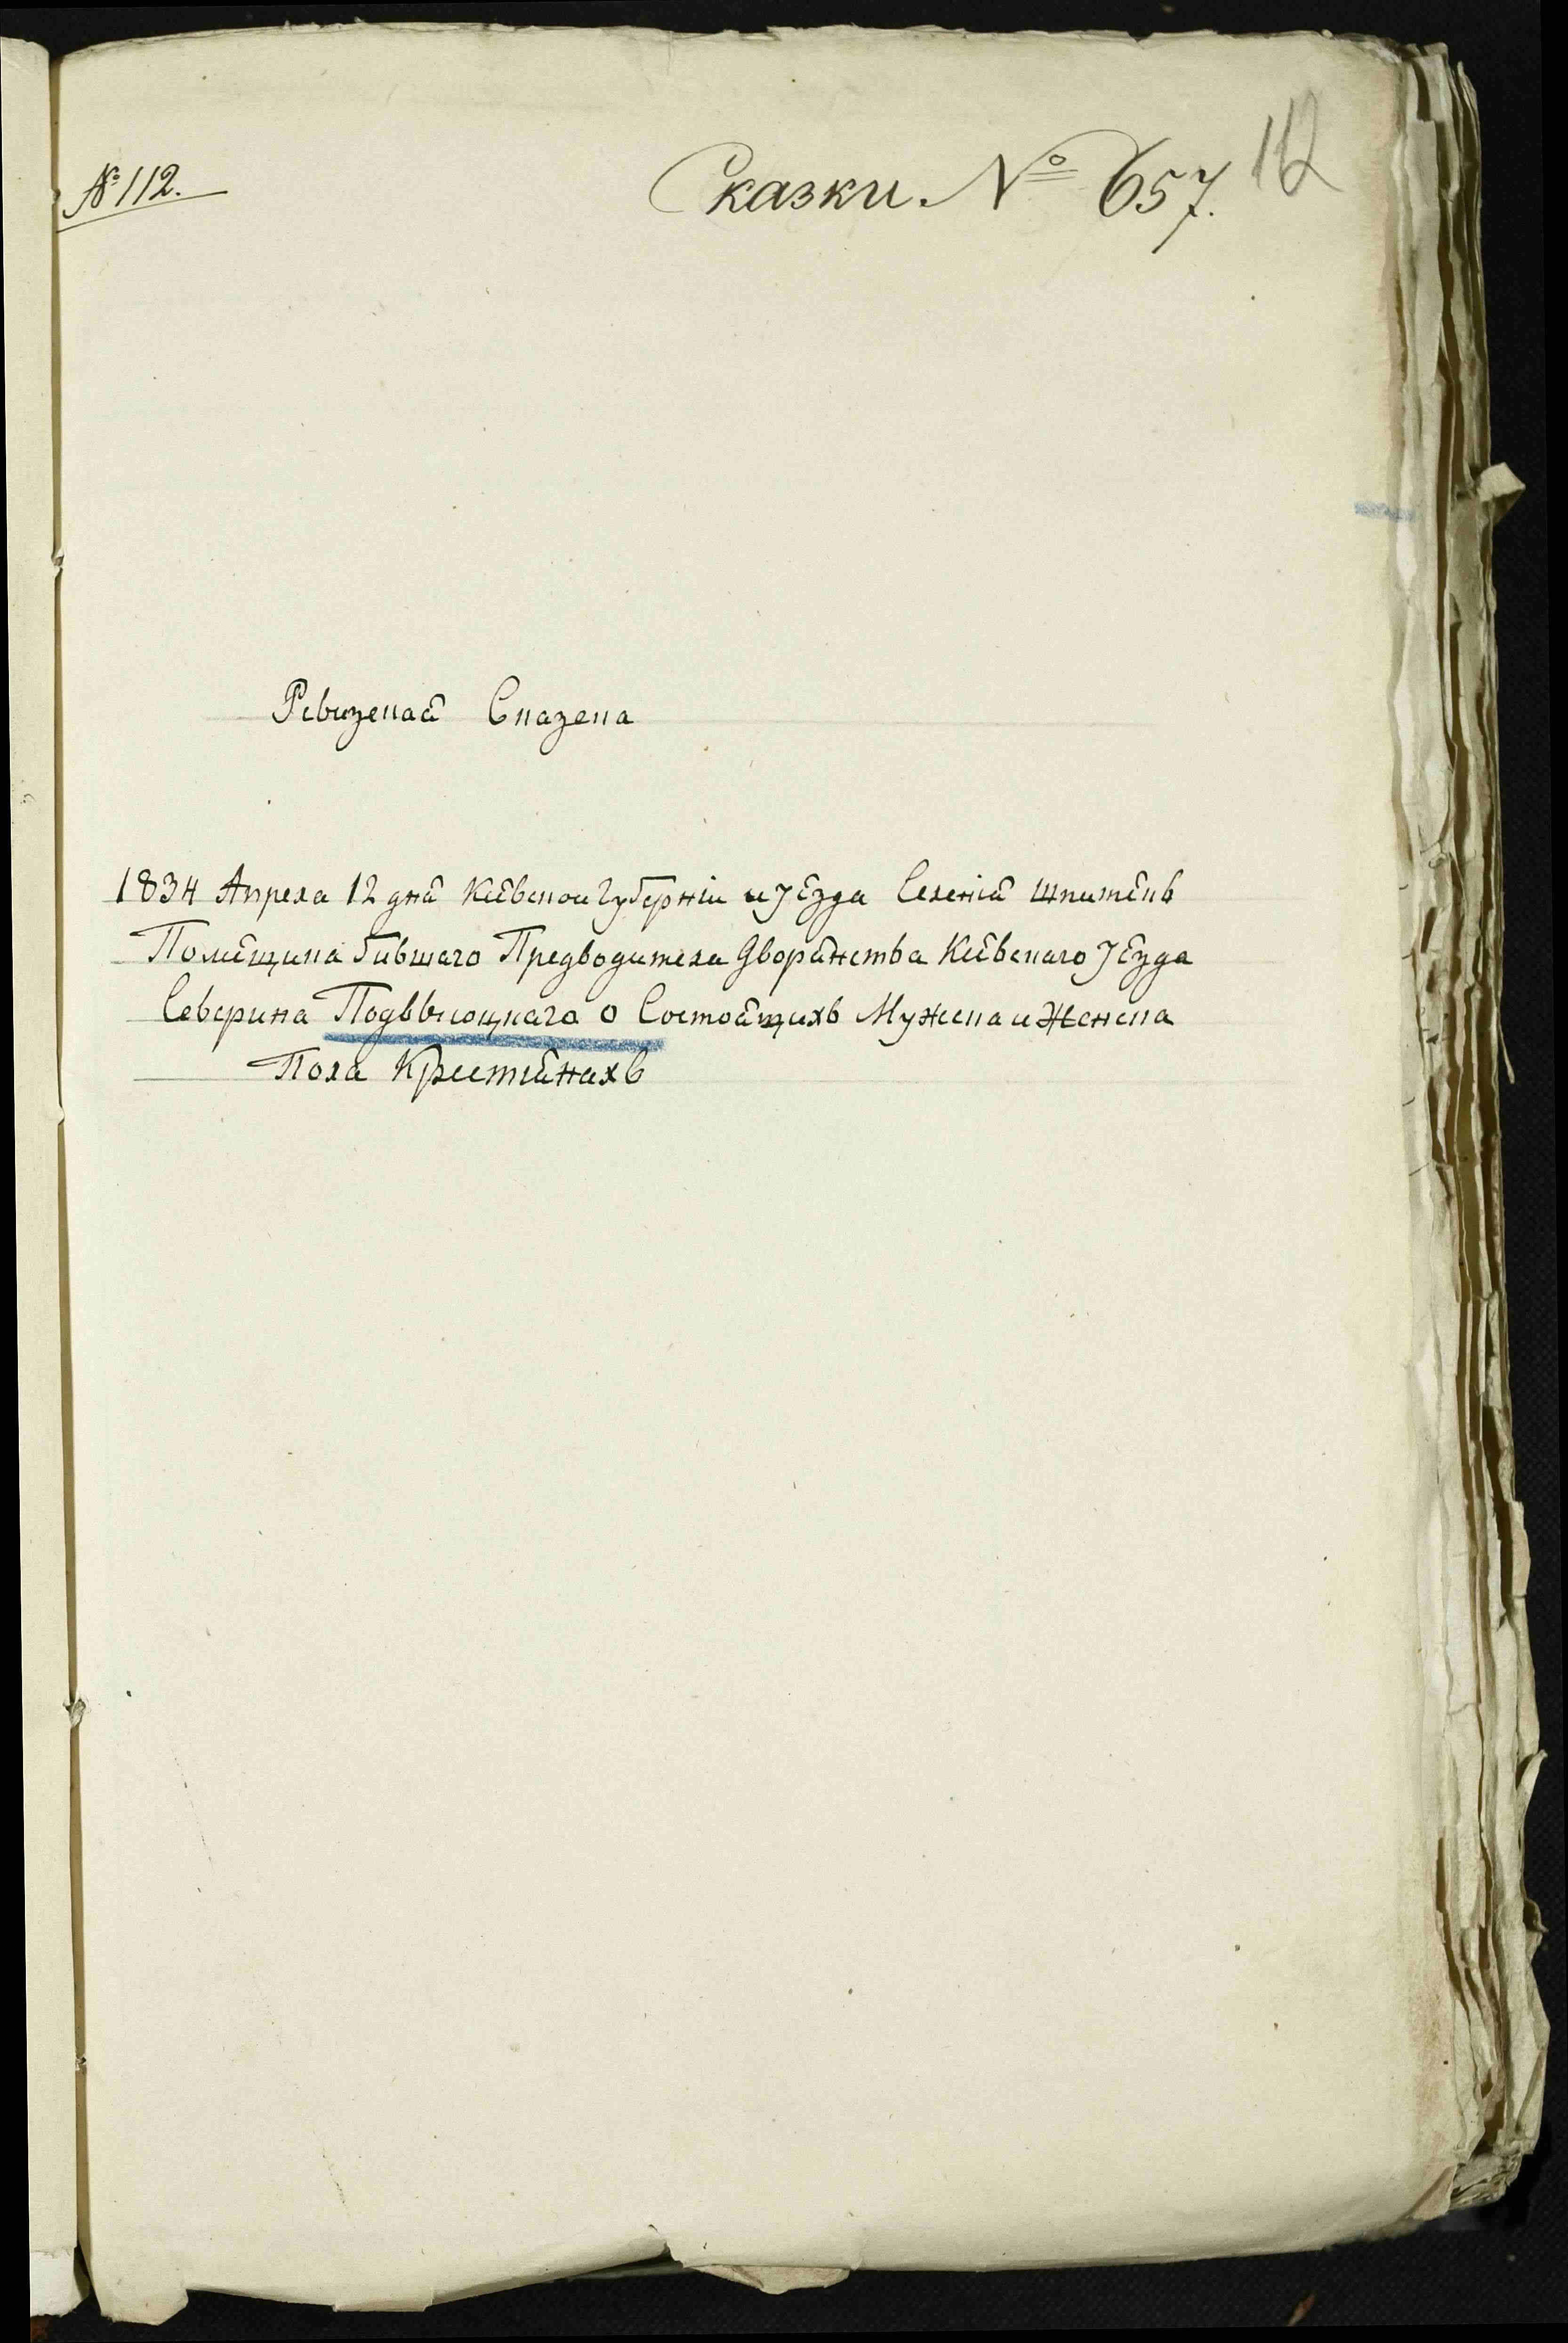 № 112.
Сказки № 657.
112
Ревизская Сказка
1834 Апреля 12 дня Киевской Губерніи и уезда Селенія Шпитекъ
Помещика бившаго Предводителя Дворянства Киевскаго уезда
Северина Подвысоцкаго о Состоящихъ Мужеска и Женска
Пола Крестиянахъ